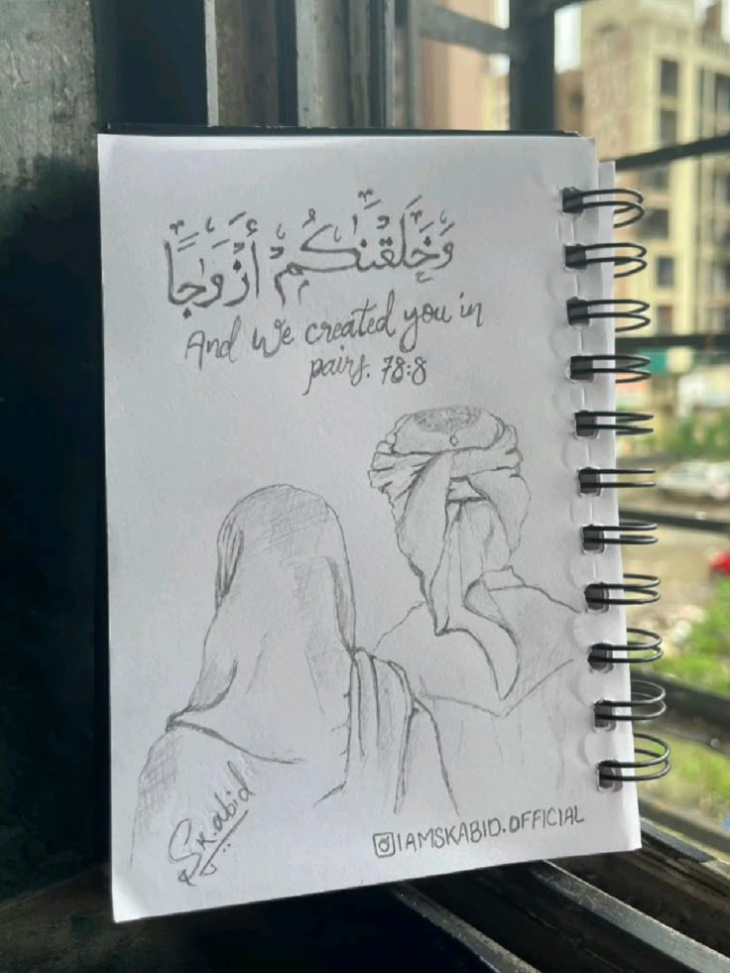 وَخَلَقْنَٰكُمْ أَزْوَٰجًا
And We created you in
pairs. 78:8
Sk.abid
IAMSKABID.OFFICIAL